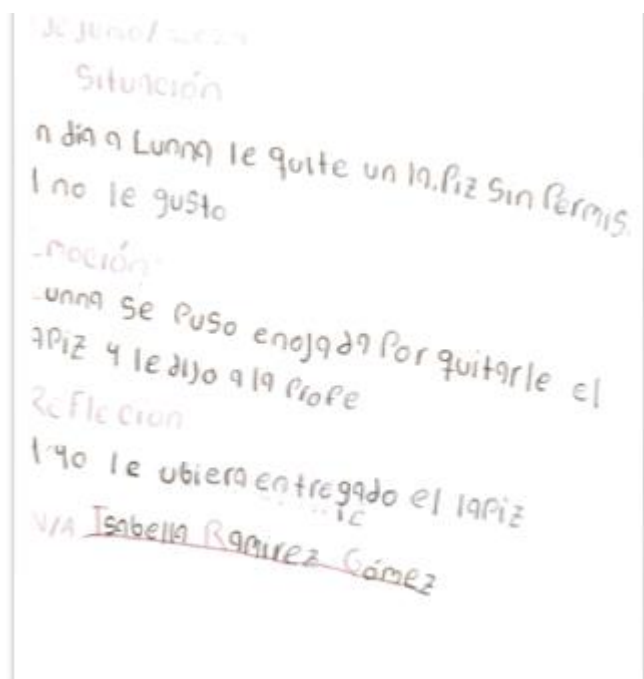 de junio / 2024
Situación
n día a Lunna le quite un lapiz sin permis
l no le gusto
moción
unna se puso enojada por quitarle el
apiz y le dijo a la profe
Reflecion
l yo le ubiera entregado el lapiz
N/A Isabella Ramirez Gómez